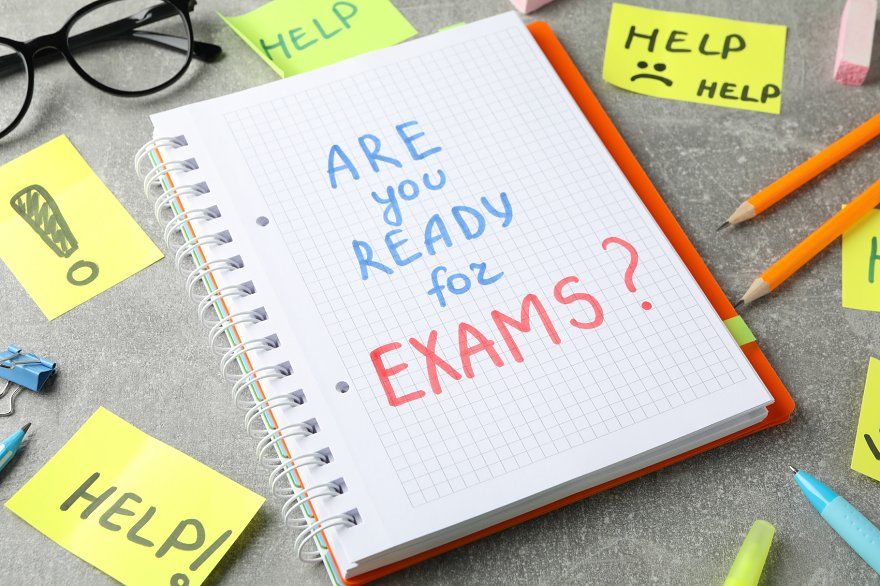 HELP
HELP
HELP
ARE
you
READY
for
EXAMS?
!
HELP!
H